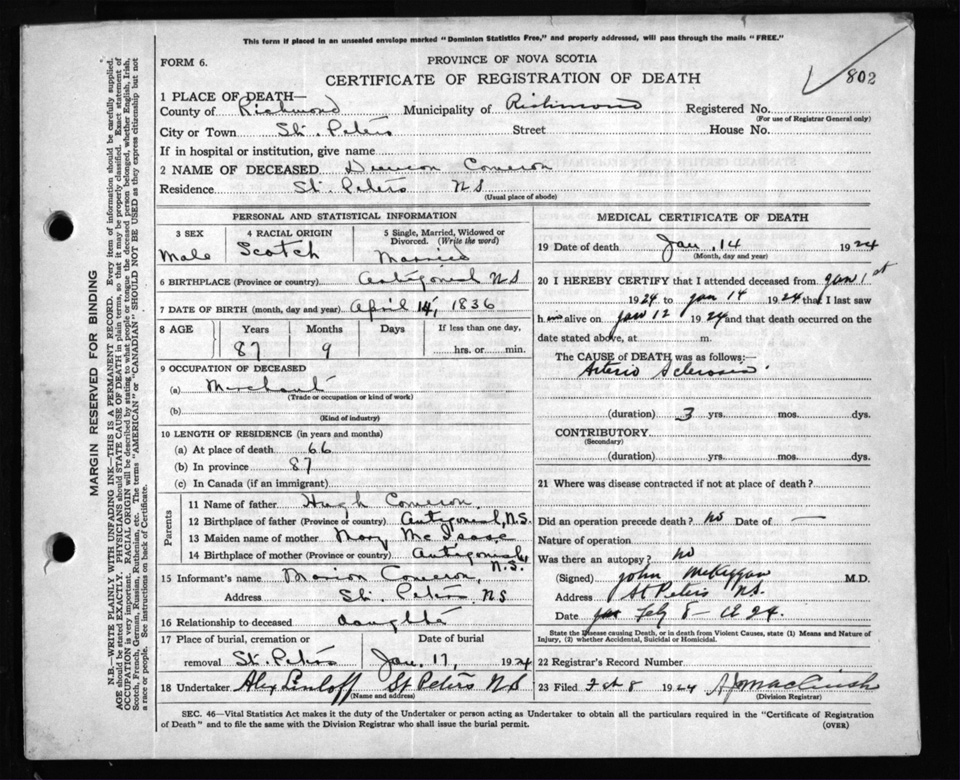 This form if placed in an unsealed envelope marked "Dominion Statistics Free," and properly addressed, will pass through the mails "FREE."
FORM 6.
PROVINCE OF NOVA SCOTIA
CERTIFICATE OF REGISTRATION OF DEATH
802
1 PLACE OF DEATH—
County of Richmond Municipality of Richmond Registered No.
(For use of Registrar General only)
City or Town St. Peters Street House No.
If in hospital or institution, give name
2 NAME OF DECEASED Cameron
Residence St. Peters NS
(Usual place of abode)
PERSONAL AND STATISTICAL INFORMATION
3 SEX 4 RACIAL ORIGIN 5 Single, Married, Widowed or Divorced. (Write the word)
Male Scotch Married
6 BIRTHPLACE (Province or country) Antigonish N.S
7 DATE OF BIRTH (month, day and year) April 14, 1836
8 AGE Years Months Days If less than one day,
87 9 hrs. or min.
9 OCCUPATION OF DECEASED
(a) Merchant
(Trade or occupation or kind of work)
(b)
(Kind of industry)
10 LENGTH OF RESIDENCE (in years and months)
(a) At place of death 66
(b) In province 87
(c) In Canada (if an immigrant)
Parents
11 Name of father Hugh Cameron
12 Birthplace of father (Province or country) Antigonish, N.S.
13 Maiden name of mother Mary McIsaac
14 Birthplace of mother (Province or country) Antigonish
N.S.
15 Informant's name Marion Cameron,
Address St. Peters, NS
16 Relationship to deceased daughter
17 Place of burial, cremation or removal Date of burial
St. Peters Jan, 17, 1924
18 Undertaker Alex St Peters NS
(Name and address)
MEDICAL CERTIFICATE OF DEATH
19 Date of death Jan, 14 1924
(Month, day and year)
20 I HEREBY CERTIFY that I attended deceased from Jan 1st
1924 to Jan 14 1924 that I last saw
him alive on Jan 12 1924 and that death occurred on the
date stated above, at m.
The CAUSE of DEATH was as follows:—
Arterio Sclerosis
(duration) 3 yrs. mos. dys.
CONTRIBUTORY
(Secondary)
(duration) yrs. mos. dys.
21 Where was disease contracted if not at place of death?
Did an operation precede death? No Date of —
Nature of operation
Was there an autopsy? No
(Signed) John M.D.
Address St Peters N.S.
Date Feby 8 1924.
State the Disease causing Death, or in death from Violent Causes, state (1) Means and Nature of
Injury, (2) whether Accidental, Suicidal or Homicidal.
22 Registrar's Record Number
23 Filed Feb 8 1924
(Division Registrar)
SEC. 46—Vital Statistics Act makes it the duty of the Undertaker or person acting as Undertaker to obtain all the particulars required in the "Certificate of Registration
of Death" and to file the same with the Division Registrar who shall issue the burial permit.
(OVER)
MARGIN RESERVED FOR BINDING
N.B.—WRITE PLAINLY WITH UNFADING INK—THIS IS A PERMANENT RECORD. Every item of information should be carefully supplied.
AGE should be stated EXACTLY. PHYSICIANS should STATE CAUSE OF DEATH in plain terms, so that it may be properly classified. Exact statement of
OCCUPATION is very important. RACIAL ORIGIN will be described by stating to what people or tongue the deceased person belonged, whether English, Irish,
Scotch, French, German, Russian, Ruthenian, etc. The terms "AMERICAN" or "CANADIAN" SHOULD NOT BE USED as they express citizenship but not
a race or people. See instructions on back of Certificate.